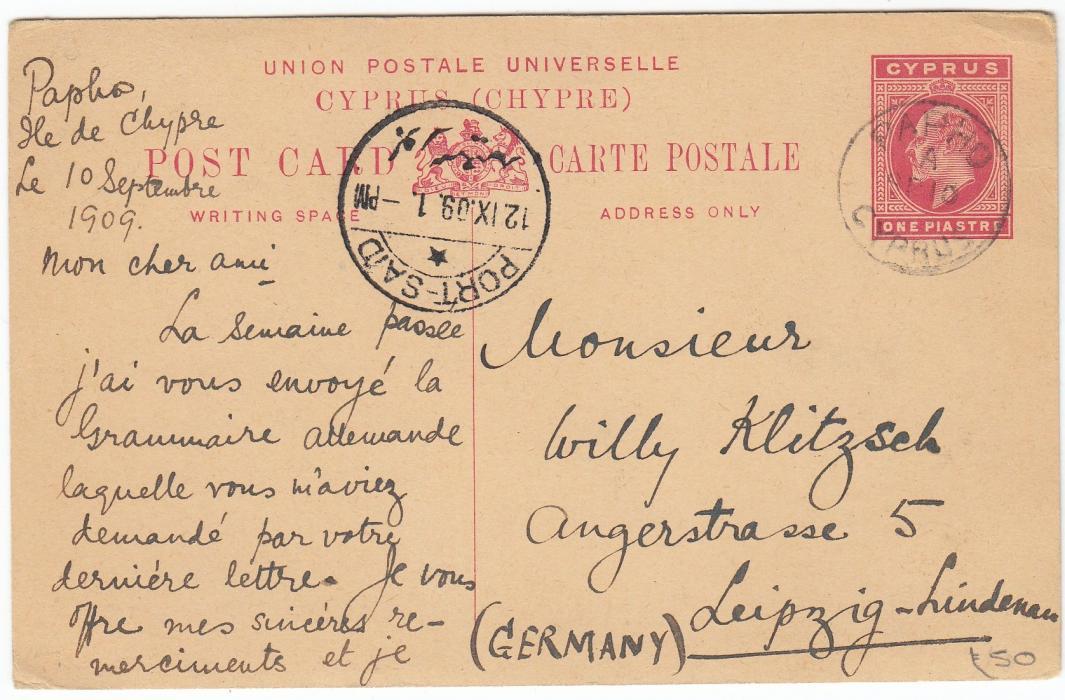 UNION POSTALE UNIVERSELLE
CYPRUS (CHYPRE)
POST CARD CARTE POSTALE
WRITING SPACE ADDRESS ONLY
CYPRUS
ONE PIASTRE
PAPHO
CYPRUS
PORT-SAID
12.IX.09.1.-PM
Papho,
Ile de Chypre
Le 10 Septembre
1909.
Mon cher ami
La Semaine passée
j'ai vous envoyé la
Grammaire allemande
laquelle vous m'aviez
demandé par votre
derniére lettre. Je vous
offre mes sincéres re-
merciments et je
Monsieur
Willy Klitzsch
Angerstrasse 5
Leipzig-Lindenau
(GERMANY)
£50